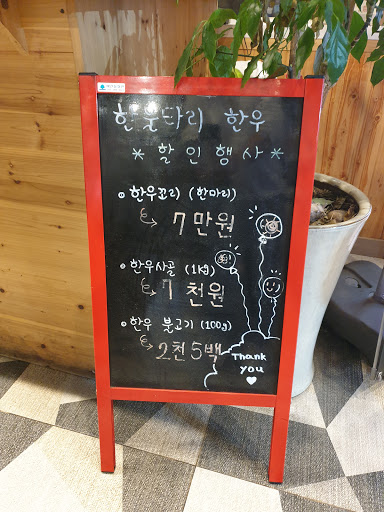 한울타리 한우
* 할인행사 *
한우꼬리 (한마리)
7만원
한우사골 (1kg)
1천원
한우 불고기 (100g)
2천5백
Thank
you